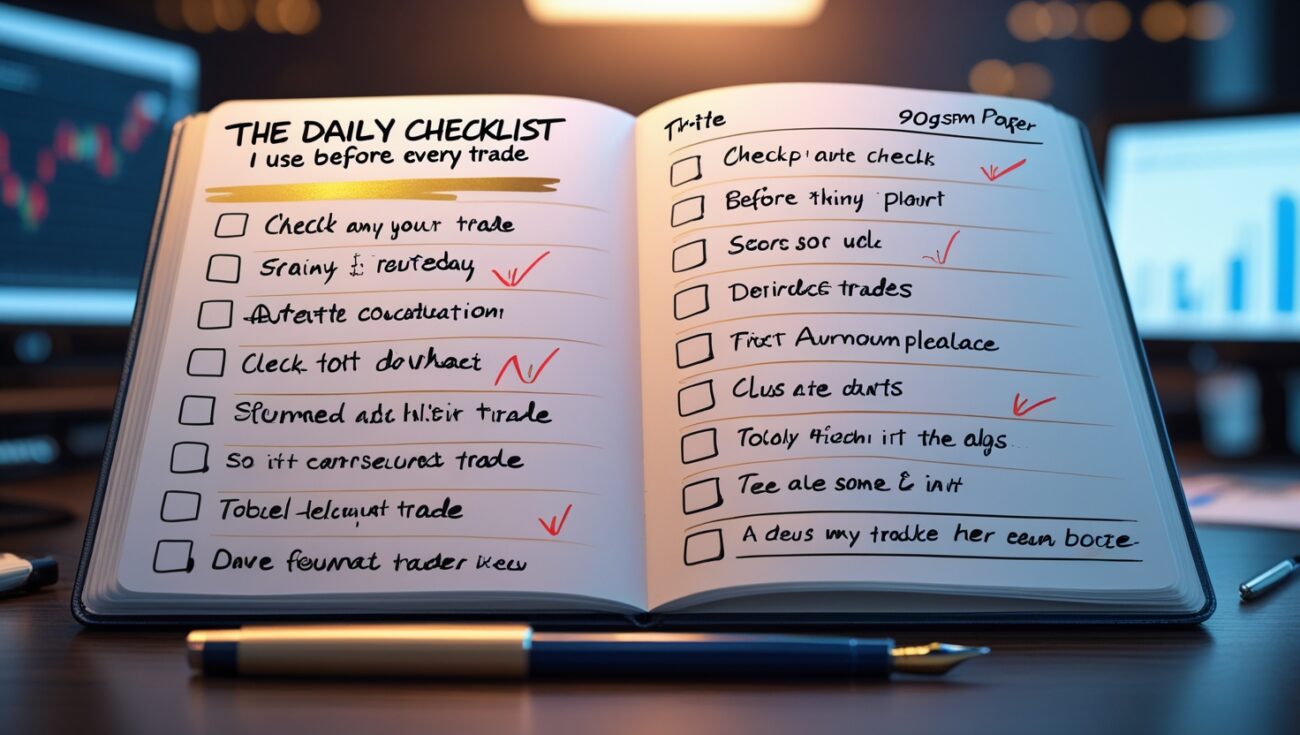 THE DAILY CHECKLIST
I use before every trade
Check any your trade
Srainy & reuteday
Auteatte cocatluation
Cleck tott dovhact
Sfummed adc hl.eir trade
So itt carrsecured trade
Tobcel -lelcajnt trade
Dave feumnat trader keu
90gsm Paper
Checkp' ante check
Before thiny plourt
Seors sor uck
Derirdce trades
First Aurnoum plealace
Clus ate darts
Tololy fiechi irt the algs
Tee ale some & inIt
A deus my trodke her eeun bocze